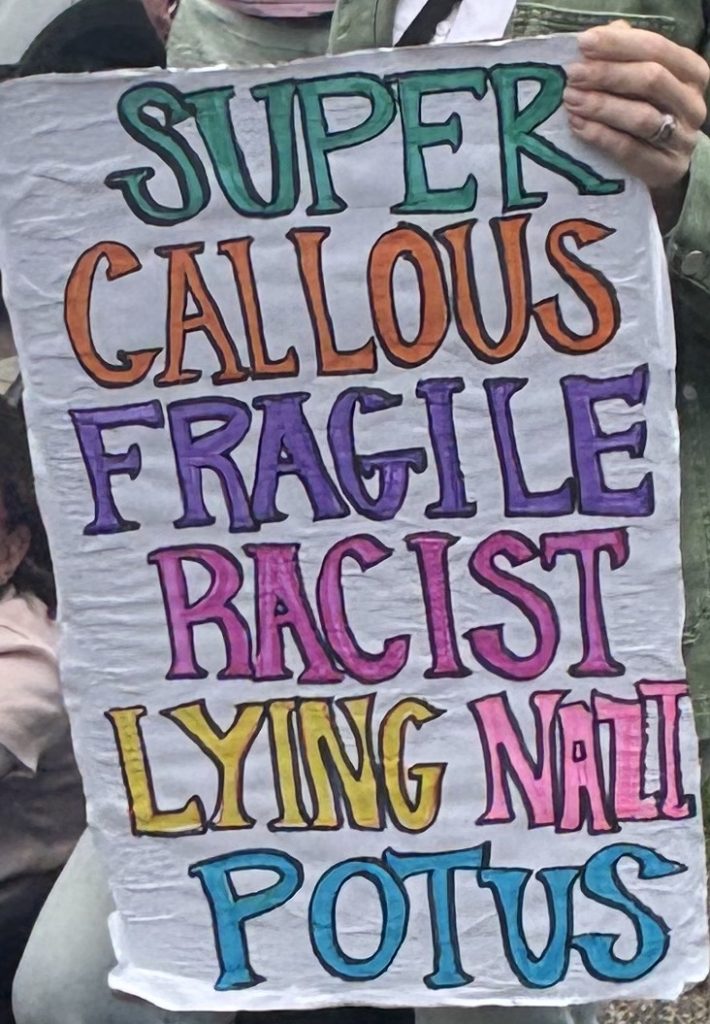 SUPER
CALLOUS
FRAGILE
RACIST
LYING NAZI
POTUS